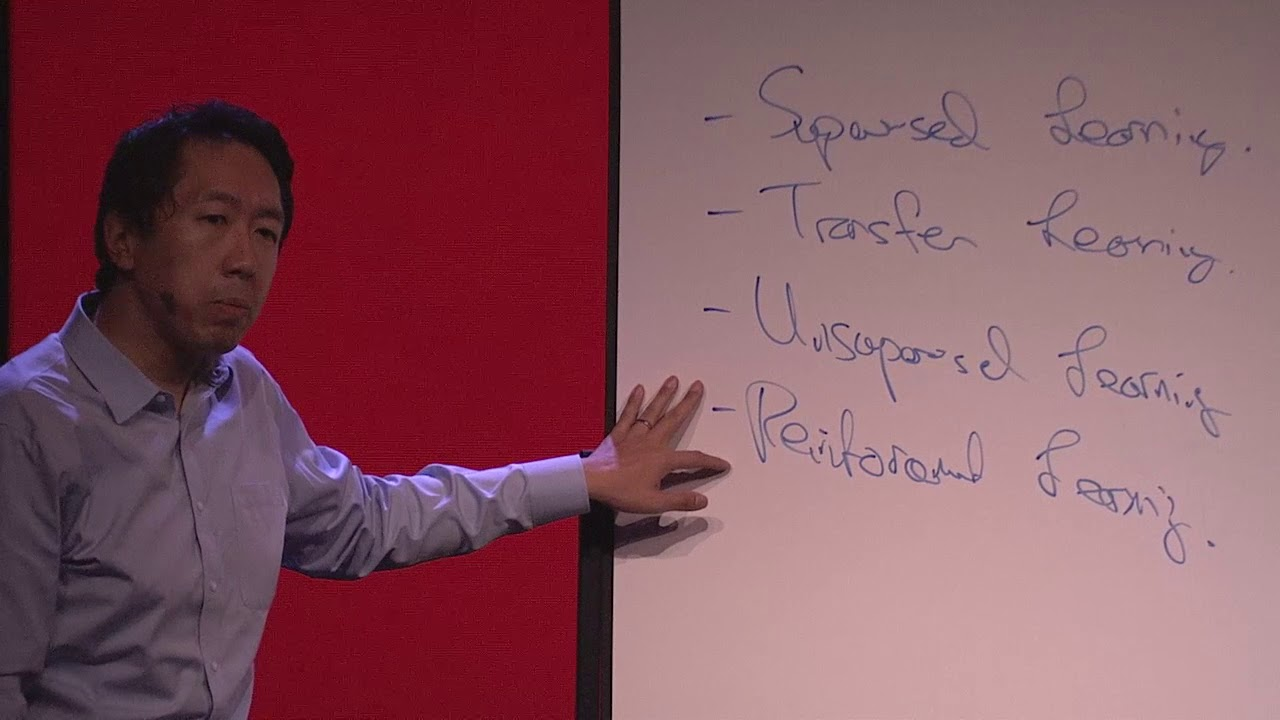 - Supervised Learning.
- Transfer Learning.
- Unsupervised Learning
- Reinforcement Learning.